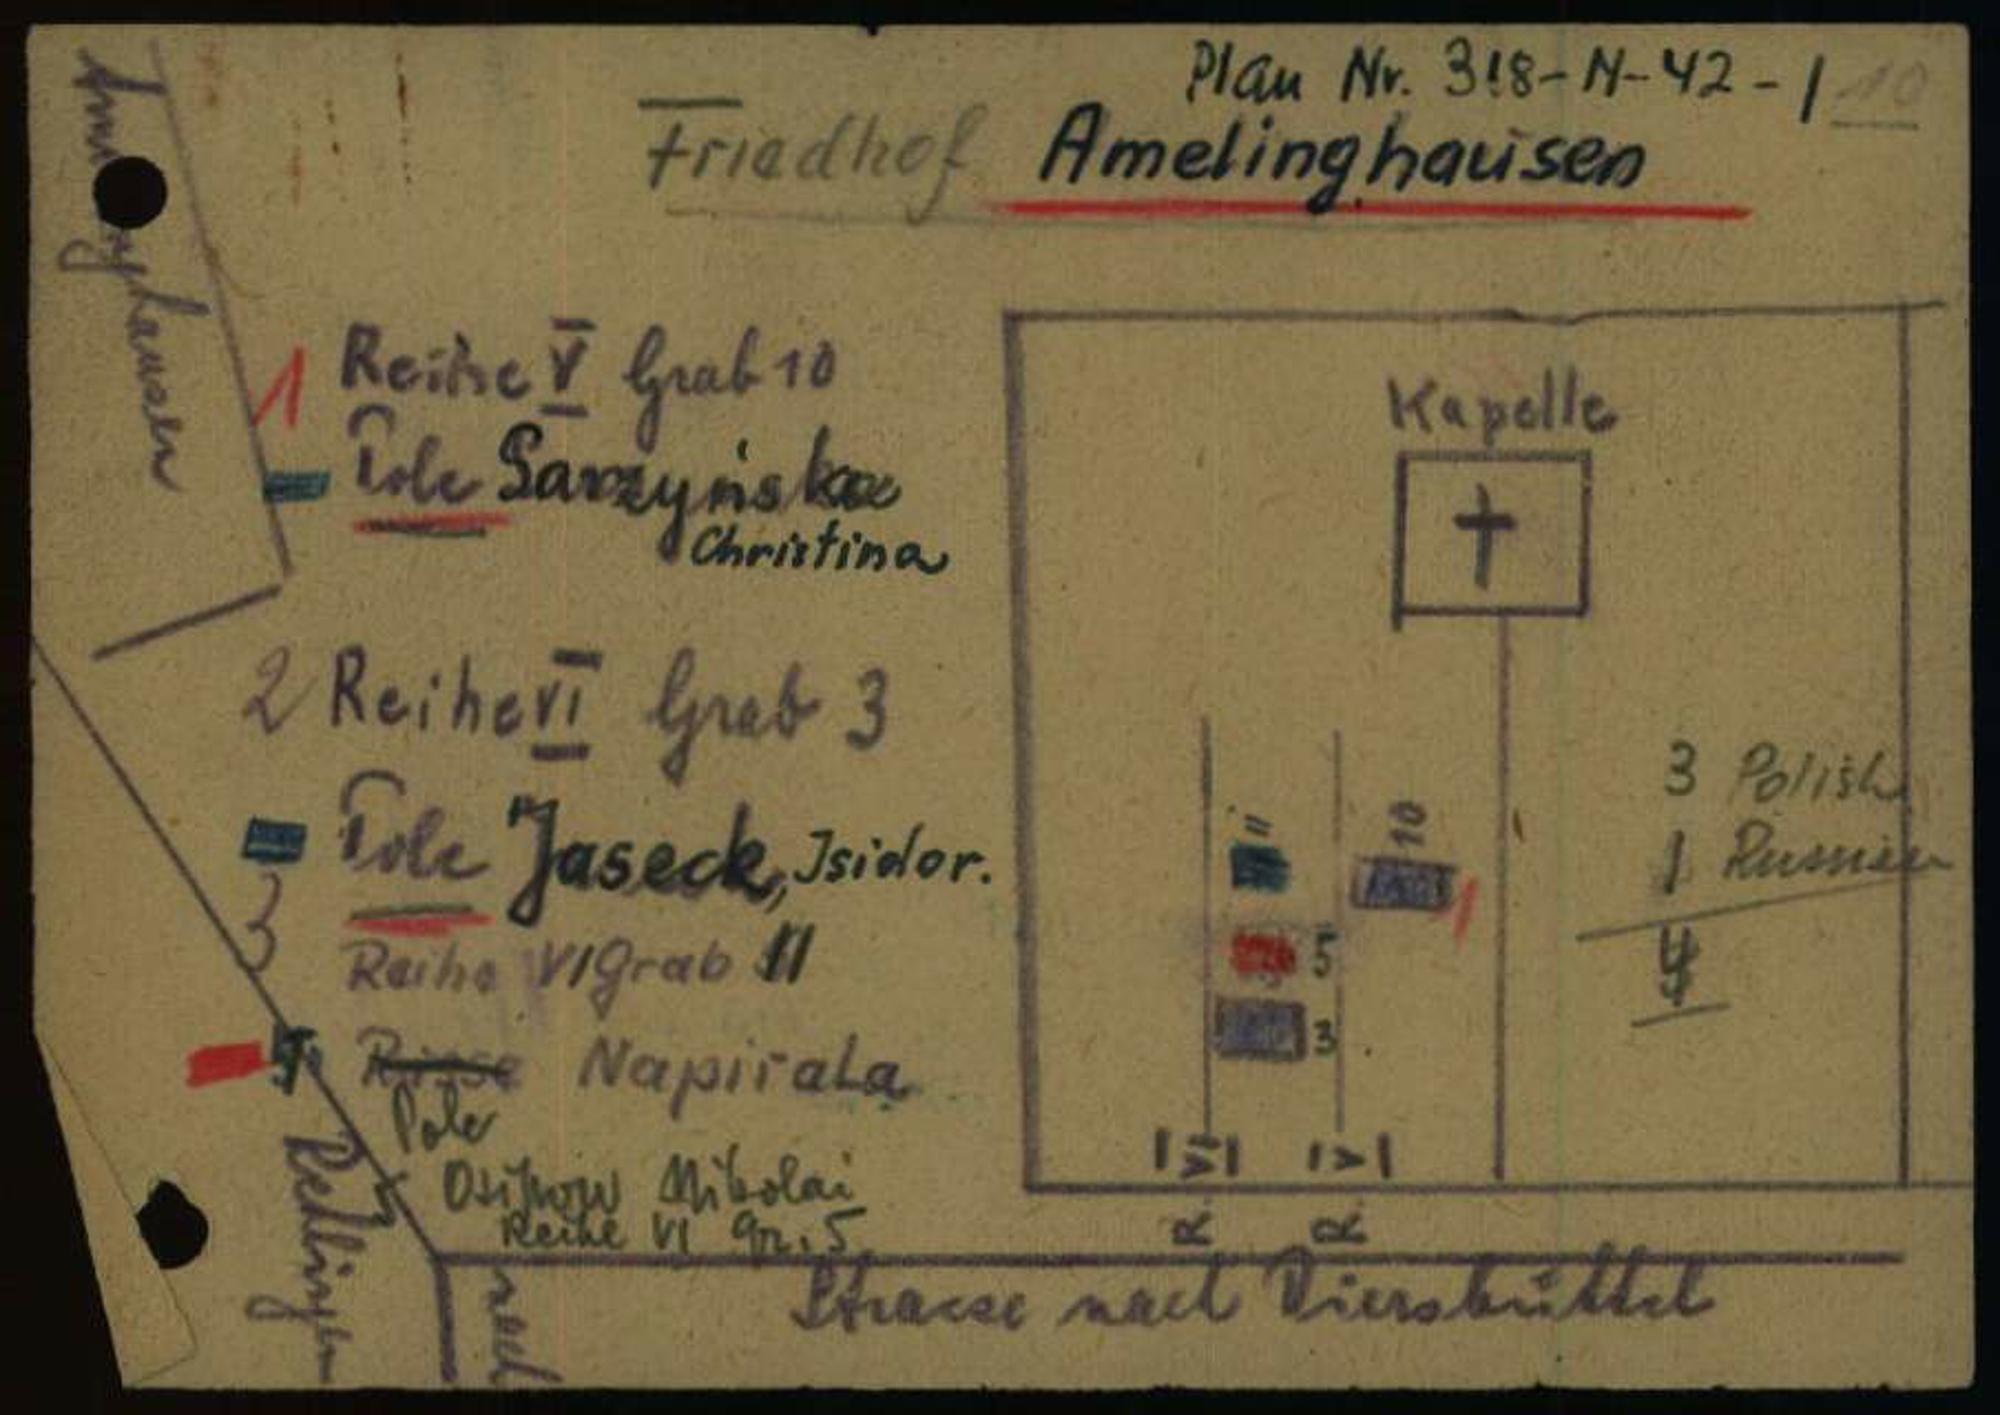 Plan Nr. 318-N-42-1 10
Friedhof Amelinghausen
Amelinghausen
1 Reihe V Grab 10
Pole Sarzyńska
Christina
2 Reihe VI Grab 3
Pole Jaseck, Isidor.
3
Reihe VI Grab 11
Russe Napirala
Pole
Nikolai
Reihe VI Gr. 5
Kapelle
11
10
1
5
3
VI
V
R
R
3 Polish
1 Russian
4
Strasse nach Diersbüttel
nach
Rehlingen